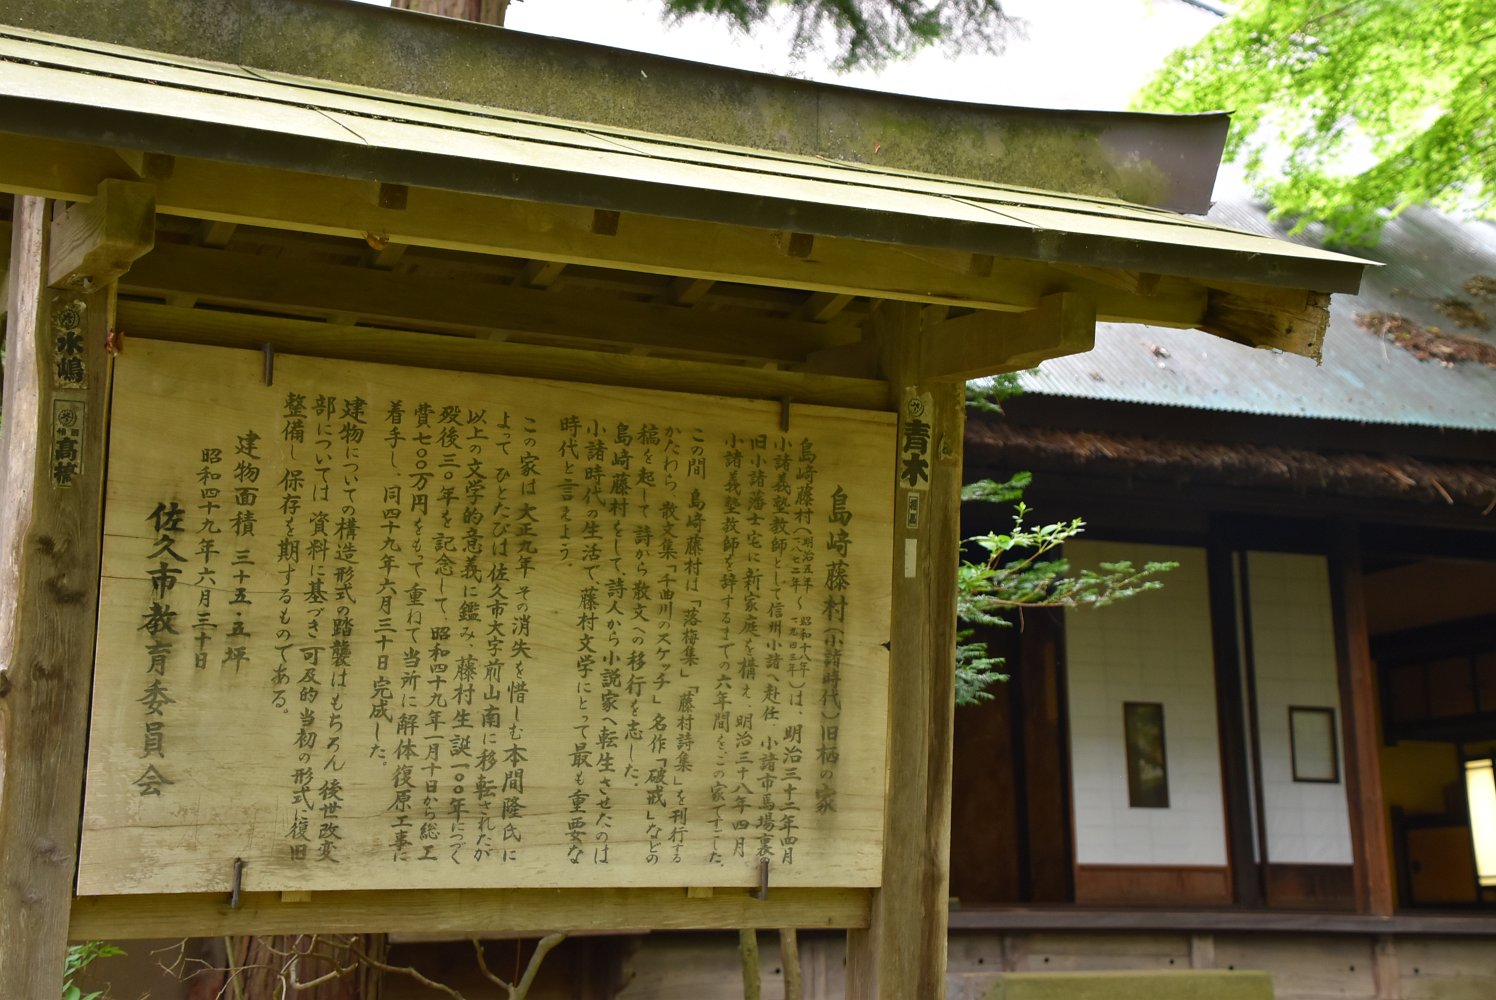 島崎藤村(小諸時代)旧栖の家
島崎藤村(明治五年~昭和十八年 一八七二年~一九四三年)は、明治三十二年四月
小諸義塾教師として信州小諸へ赴任、小諸市馬場裏の
旧小諸藩士宅に新家庭を構え、明治三十八年四月
小諸義塾教師を辞するまでの六年間をこの家ですごした。
この間 島崎藤村は「落梅集」「藤村詩集」を刊行する
かたわら、散文集「千曲川のスケッチ」名作「破戒」などの
稿を起して詩から散文への移行を志した。
島崎藤村をして、詩人から小説家へ転生させたのは
小諸時代の生活で、藤村文学にとって最も重要な
時代と言えよう。
この家は大正九年その消失を惜しむ本間隆氏に
よって ひとたびは佐久市大字前山南に移転されたが
以上の文学的意義に鑑み、藤村生誕一〇〇年につづく
歿後三〇年を記念して、昭和四十九年一月十日から総工
費七〇〇万円をもって重ねて当所に解体復原工事に
着手し、同四十九年六月三十日完成した。
建物についての構造形式の踏襲はもちろん 後世改変
部については 資料に基づき 可及的当初の形式に復旧
整備し保存を期するものである。
建物面積 三十五・五坪
昭和四十九年六月三十日
佐久市教育委員会
水嶋
高橋
青木